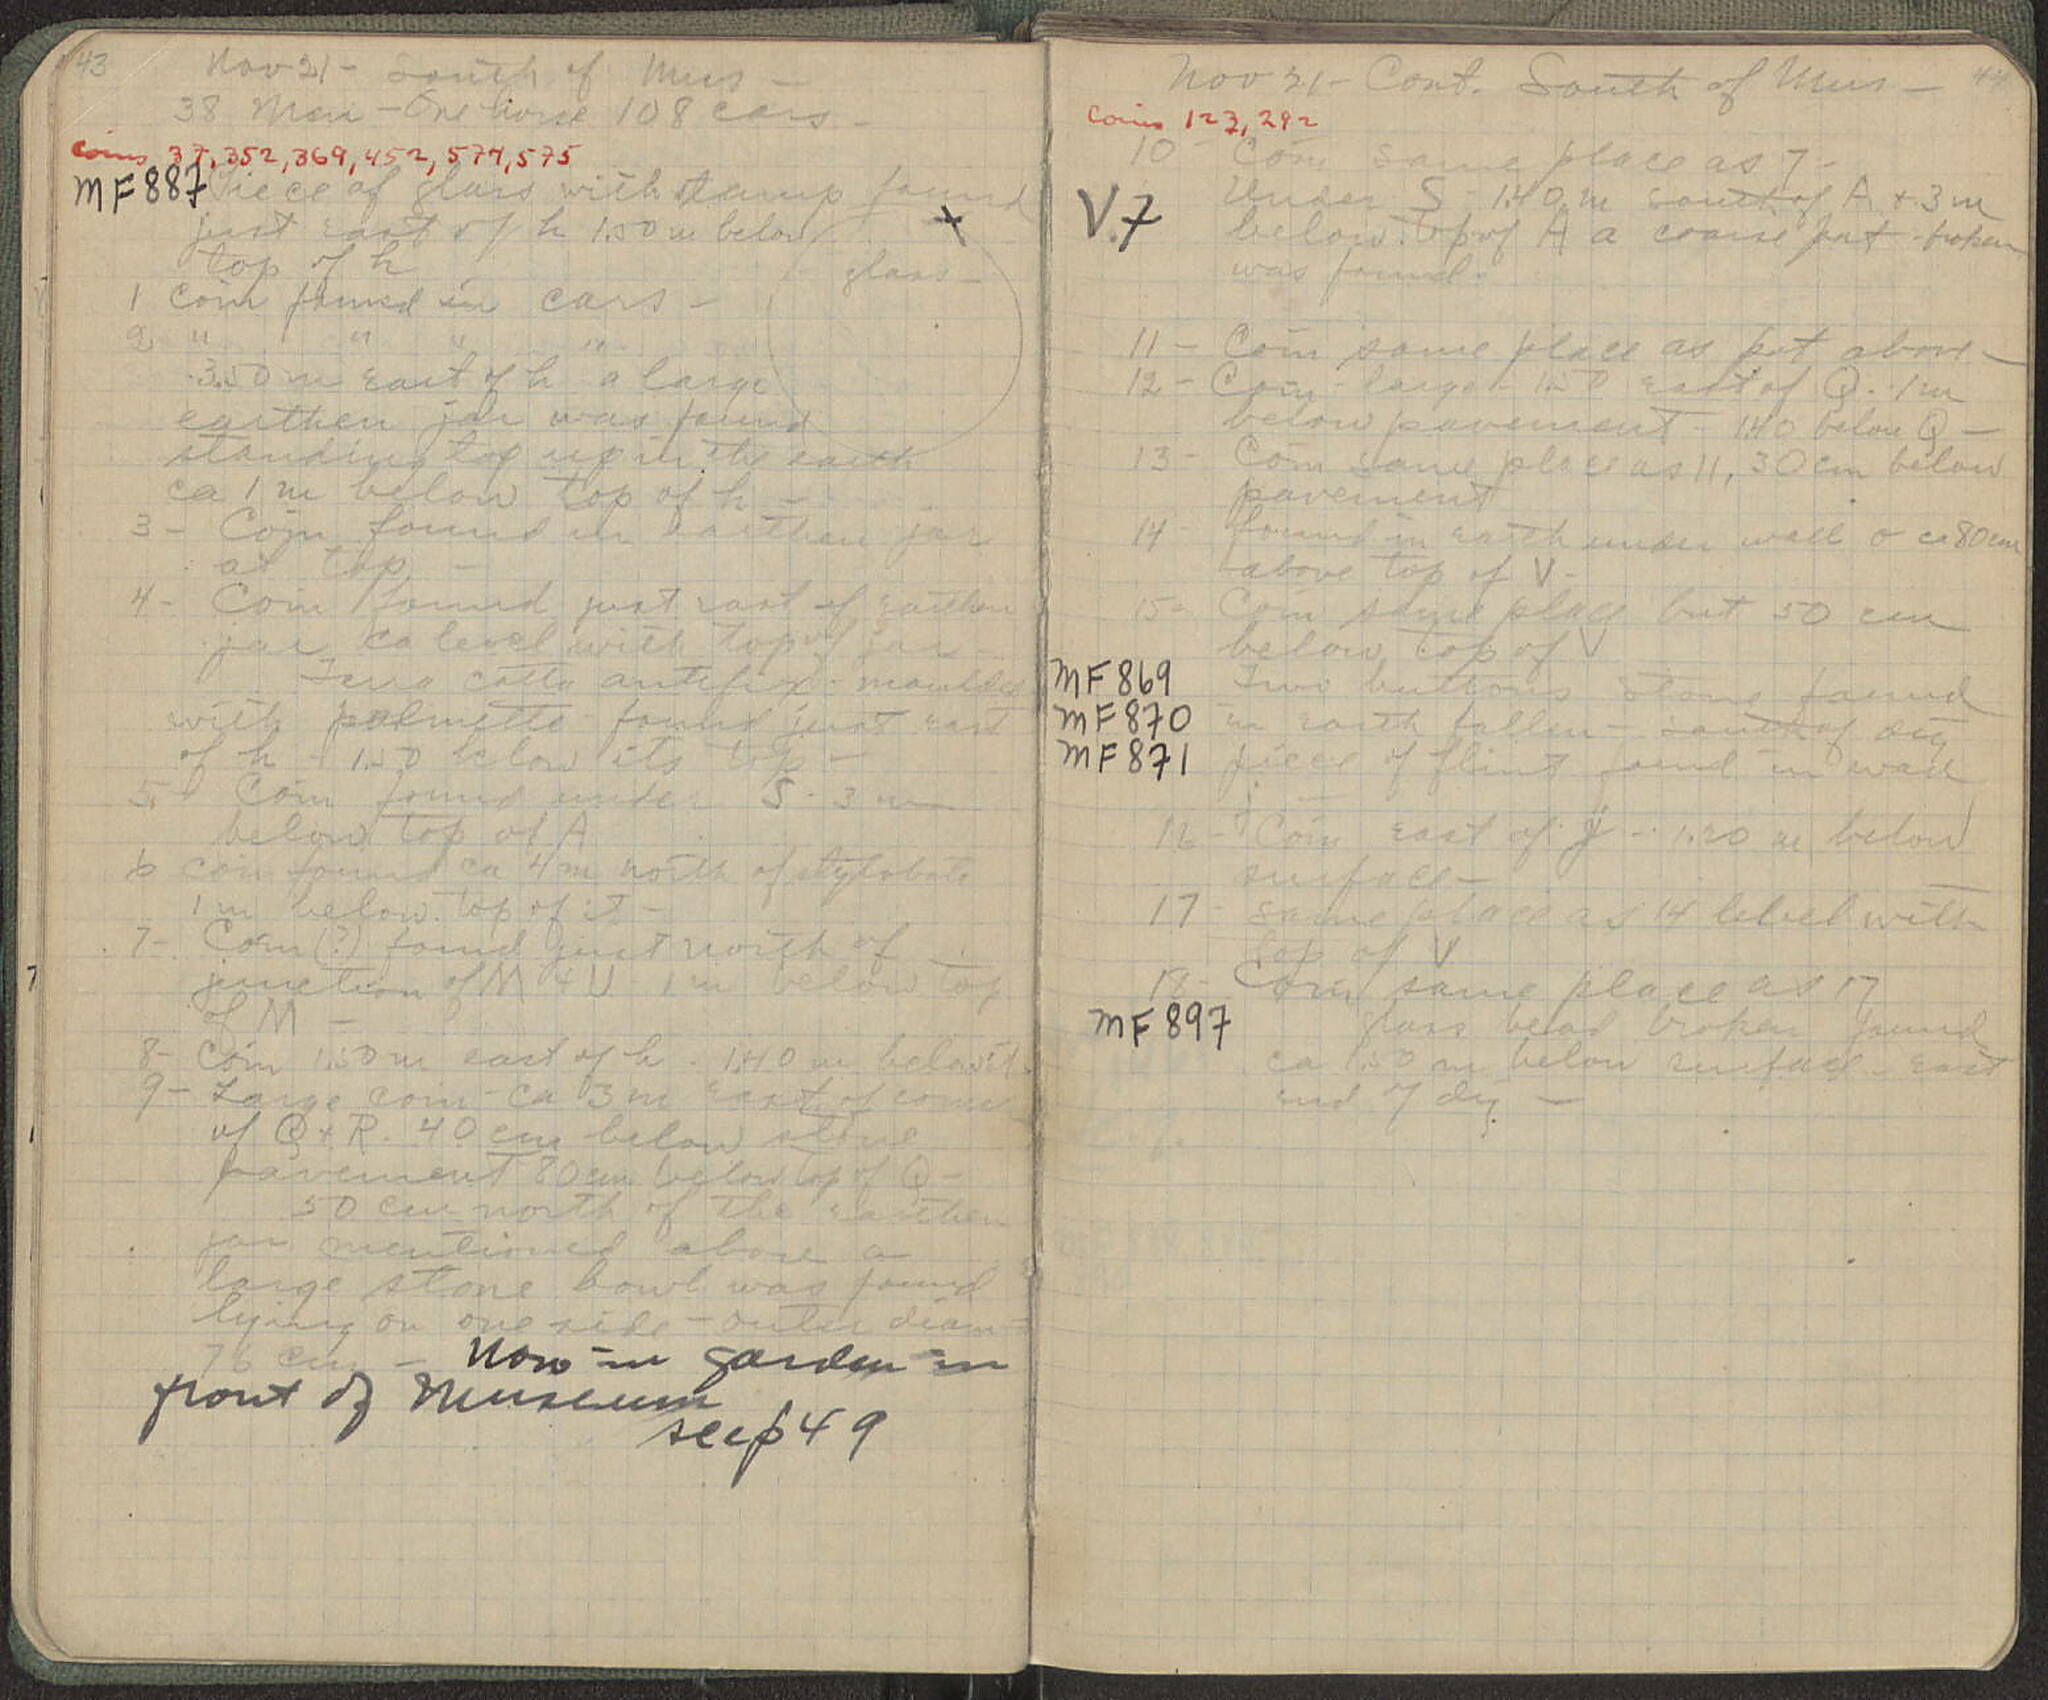 43
Nov 21 - South of Mus -
38 Men - One horse 108 cars -
Coins 37, 352, 369, 452, 574, 575
MF 887 Piece of glass with stamp found
just east of h 1.50 m below
top of h
glass -
1 Coin found in cars -
2 " " " "
3.50 m east of h a large
earthen jar was found
standing top up in the earth
ca 1 m below top of h -
3 - Coin found in earthen jar
at top -
4 - Coin found just east of earthen
jar, ca level with top of jar -
Terra cotta antefix - moulded
with palmette - found just east
of h - 1.50 below its top -
5 - Coin found under S - 3 m
below top of A
6 coin found ca 4 m north of stylobate
1 m below top of it -
7 - Coin (?) found just north of
junction of M + U - 1 m below top
of M -
8 - Coin 1.50 m east of h - 1.40 m below it -
9 - Large coin - ca 3 m east of corner
of Q + R. 40 cm below stone
pavement 80 cm below top of Q -
50 cm north of the earthen
jar mentioned above a
large stone bowl was found
lying on one side - outer diam =
76 cm - Now in garden in
front of Museum
see p 49
Nov 21 - Cont. South of Mus - 44
Coins 127, 292
10 - Coin same place as 7 -
Under S - 1.40 m south of A + 3 m
V.7 below top of A a coarse pot - broken
was found -
11 - Coin same place as pot above -
12 - Coin - large - 1.50 east of Q - 1 m
below pavement - 1.40 below Q -
13 - Coin same place as 11, 30 cm below
pavement
14 - found in earth under wall o ca 80 cm
above top of V -
15 - Coin same place but 50 cm
below top of V
MF 869 Two buttons stone found
MF 870 in earth fallen - south of dig
MF 871 piece of flint found in wall
j -
16 - Coin east of j - 1.20 m below
surface -
17 - same place as 14 level with
top of V
18 - Coin same place as 17
MF 897 glass bead broken found
ca 1.50 m below surface - east
end of dig -